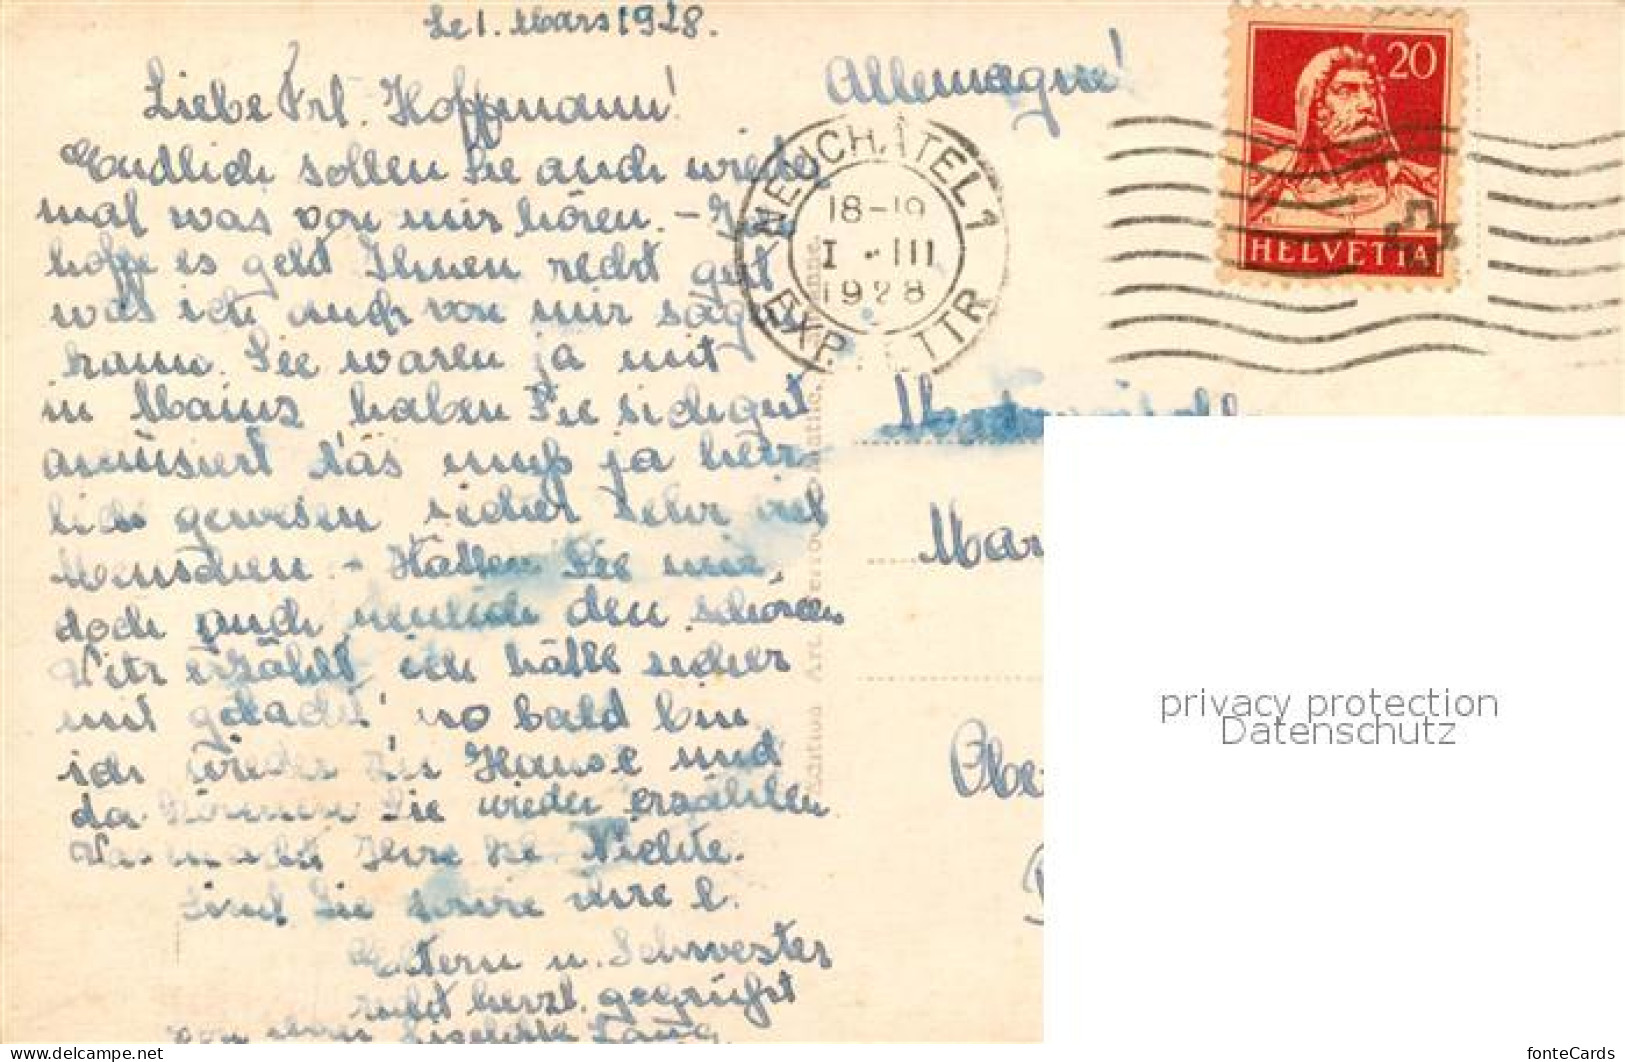 Le 1. Mars 1928.
Liebe Frl. Hoffmann!
Endlich sollen Sie auch wieder
mal was von mir hören. - Ich
hoffe es geht Ihnen recht gut
was ich auch von mir sagen
kann. Sie waren ja mit
in Mainz haben Sie sich gut
amüsiert das muß ja herr-
lich gewesen sicher sehr viel
Menschen. - Hatten Sie mir
doch auch neulich den schönen
Witz erzählt ich hätte sicher
mit gelacht! no bald bin
ich wieder zu Hause und
da können Sie wieder erzählen
Was macht Ihre kl. Nichte.
Sind Sie sowie Ihre l.
Eltern u. Schwester
recht herzl. gegrüßt
von Ihrer Lang
Allemagne!
NEUCHÂTEL 1
18-19
I - III
1928
EXP. LETTR
20
HELVETIA
Mademoiselle
Mar
Obe
Edition Art. Perrochet
privacy protection
Datenschutz
https://www.delcampe.net
fonteCards